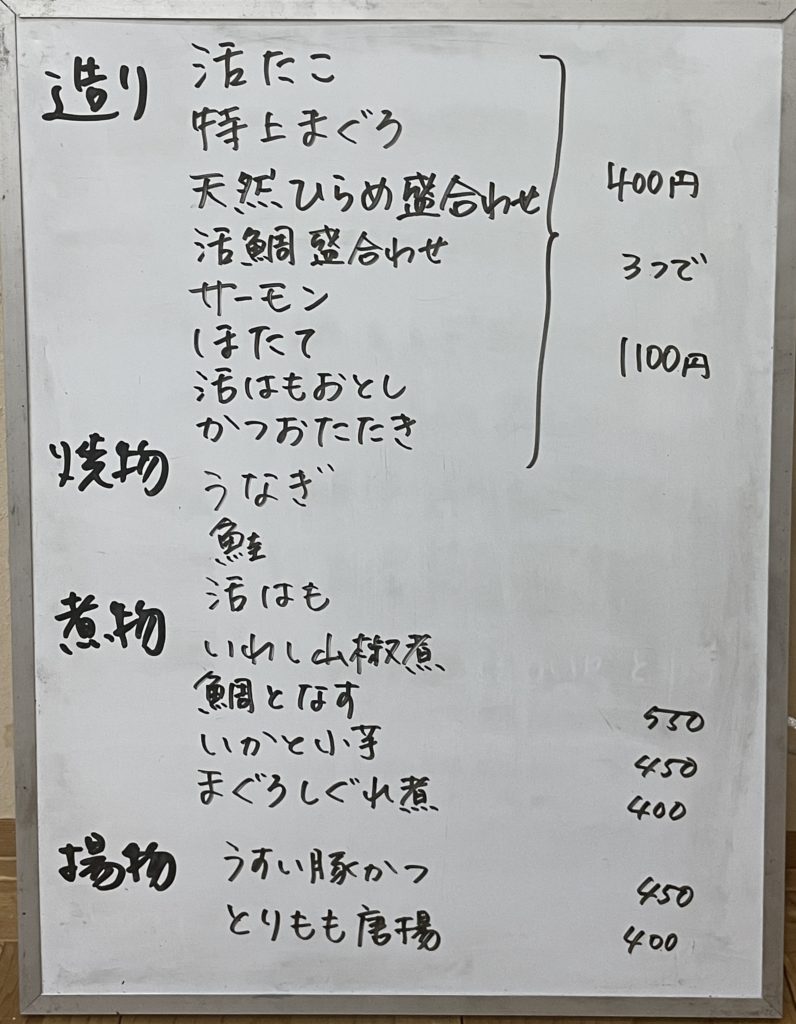 造り 活たこ
特上まぐろ
天然ひらめ盛合わせ 400円
活鯛盛合わせ 3つで
サーモン
ほたて 1100円
活はもおとし
かつおたたき
焼物 うなぎ
鮭
活はも
煮物 いわし山椒煮
鯛となす 550
いかと小芋 450
まぐろしぐれ煮 400
揚物 うすい豚かつ 450
とりもも唐揚 400